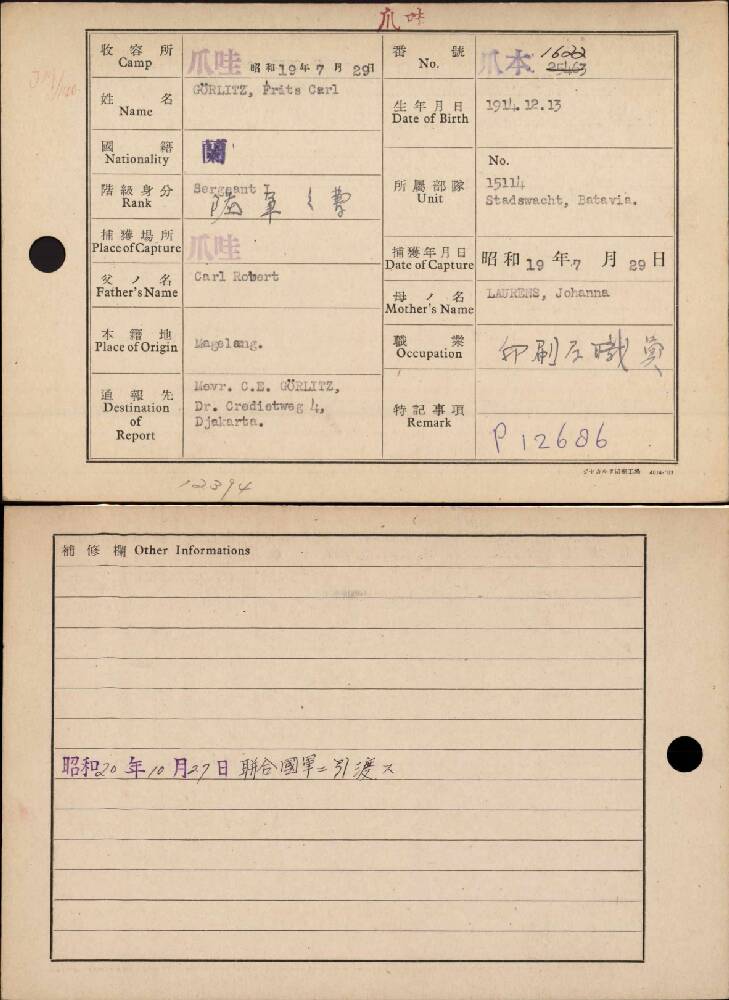 爪哇
收容所
Camp
爪哇 昭和19年7月29日
番號
No.
爪本 16022
25463
姓名
Name
GÖRLITZ, Frits Carl
生年月日
Date of Birth
1914.12.13
國籍
Nationality
蘭
階級身分
Rank
Sergeant I
所屬部隊
Unit
No.
15114
Stadswacht, Batavia.
捕獲場所
Place of Capture
爪哇
捕獲年月日
Date of Capture
昭和19年7月29日
父ノ名
Father's Name
Carl Robert
母ノ名
Mother's Name
LAURENS, Johanna
本籍地
Place of Origin
Magelang.
職業
Occupation
印刷店職員
通報先
Destination
of
Report
Mevr. C.E. GÖRLITZ,
Dr. Credietweg 4,
Djakarta.
特記事項
Remark
P 12686
12394
補修欄 Other Informations
昭和20年10月27日 聯合國軍ニ引渡ス